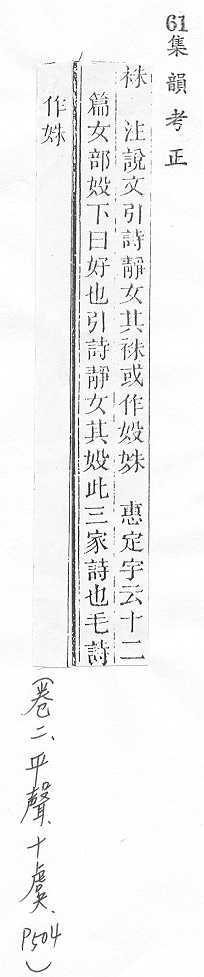 61集韻考正
袾 注說文引詩靜女其袾或作㛔姝 惠定字云十二
篇女部㛔下曰好也引詩靜女其㛔此三家詩也毛詩
作姝
(卷二、平聲、十虞、P504)